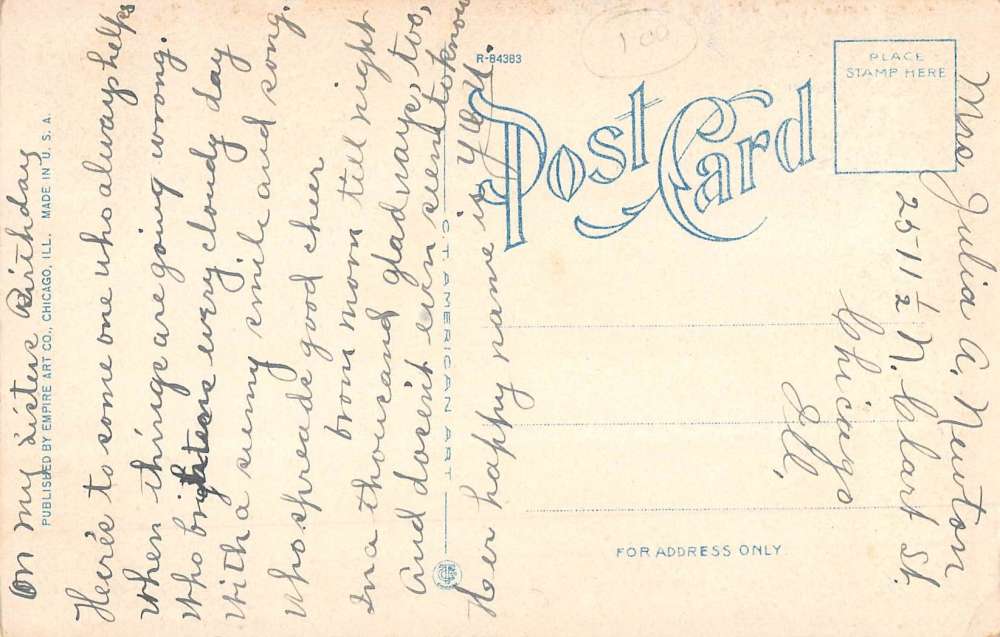 On my Sisters Birthday
Here's to some one who always helps
When things are going wrong.
Who brightens every cloudy day
With a sunny smile and song.
Who spreads good cheer
from morn till night
In a thousand glad ways, too,
And doesn't even seem to know
Her happy name is You.
PUBLISHED BY EMPIRE ART CO., CHICAGO, ILL. MADE IN U. S. A.
C. T. AMERICAN ART
R-84383
100
POST CARD
PLACE
STAMP HERE
Mrs Julia A. Newton
2511 1/2 N. Clark St.
Chicago
Ill,
FOR ADDRESS ONLY.